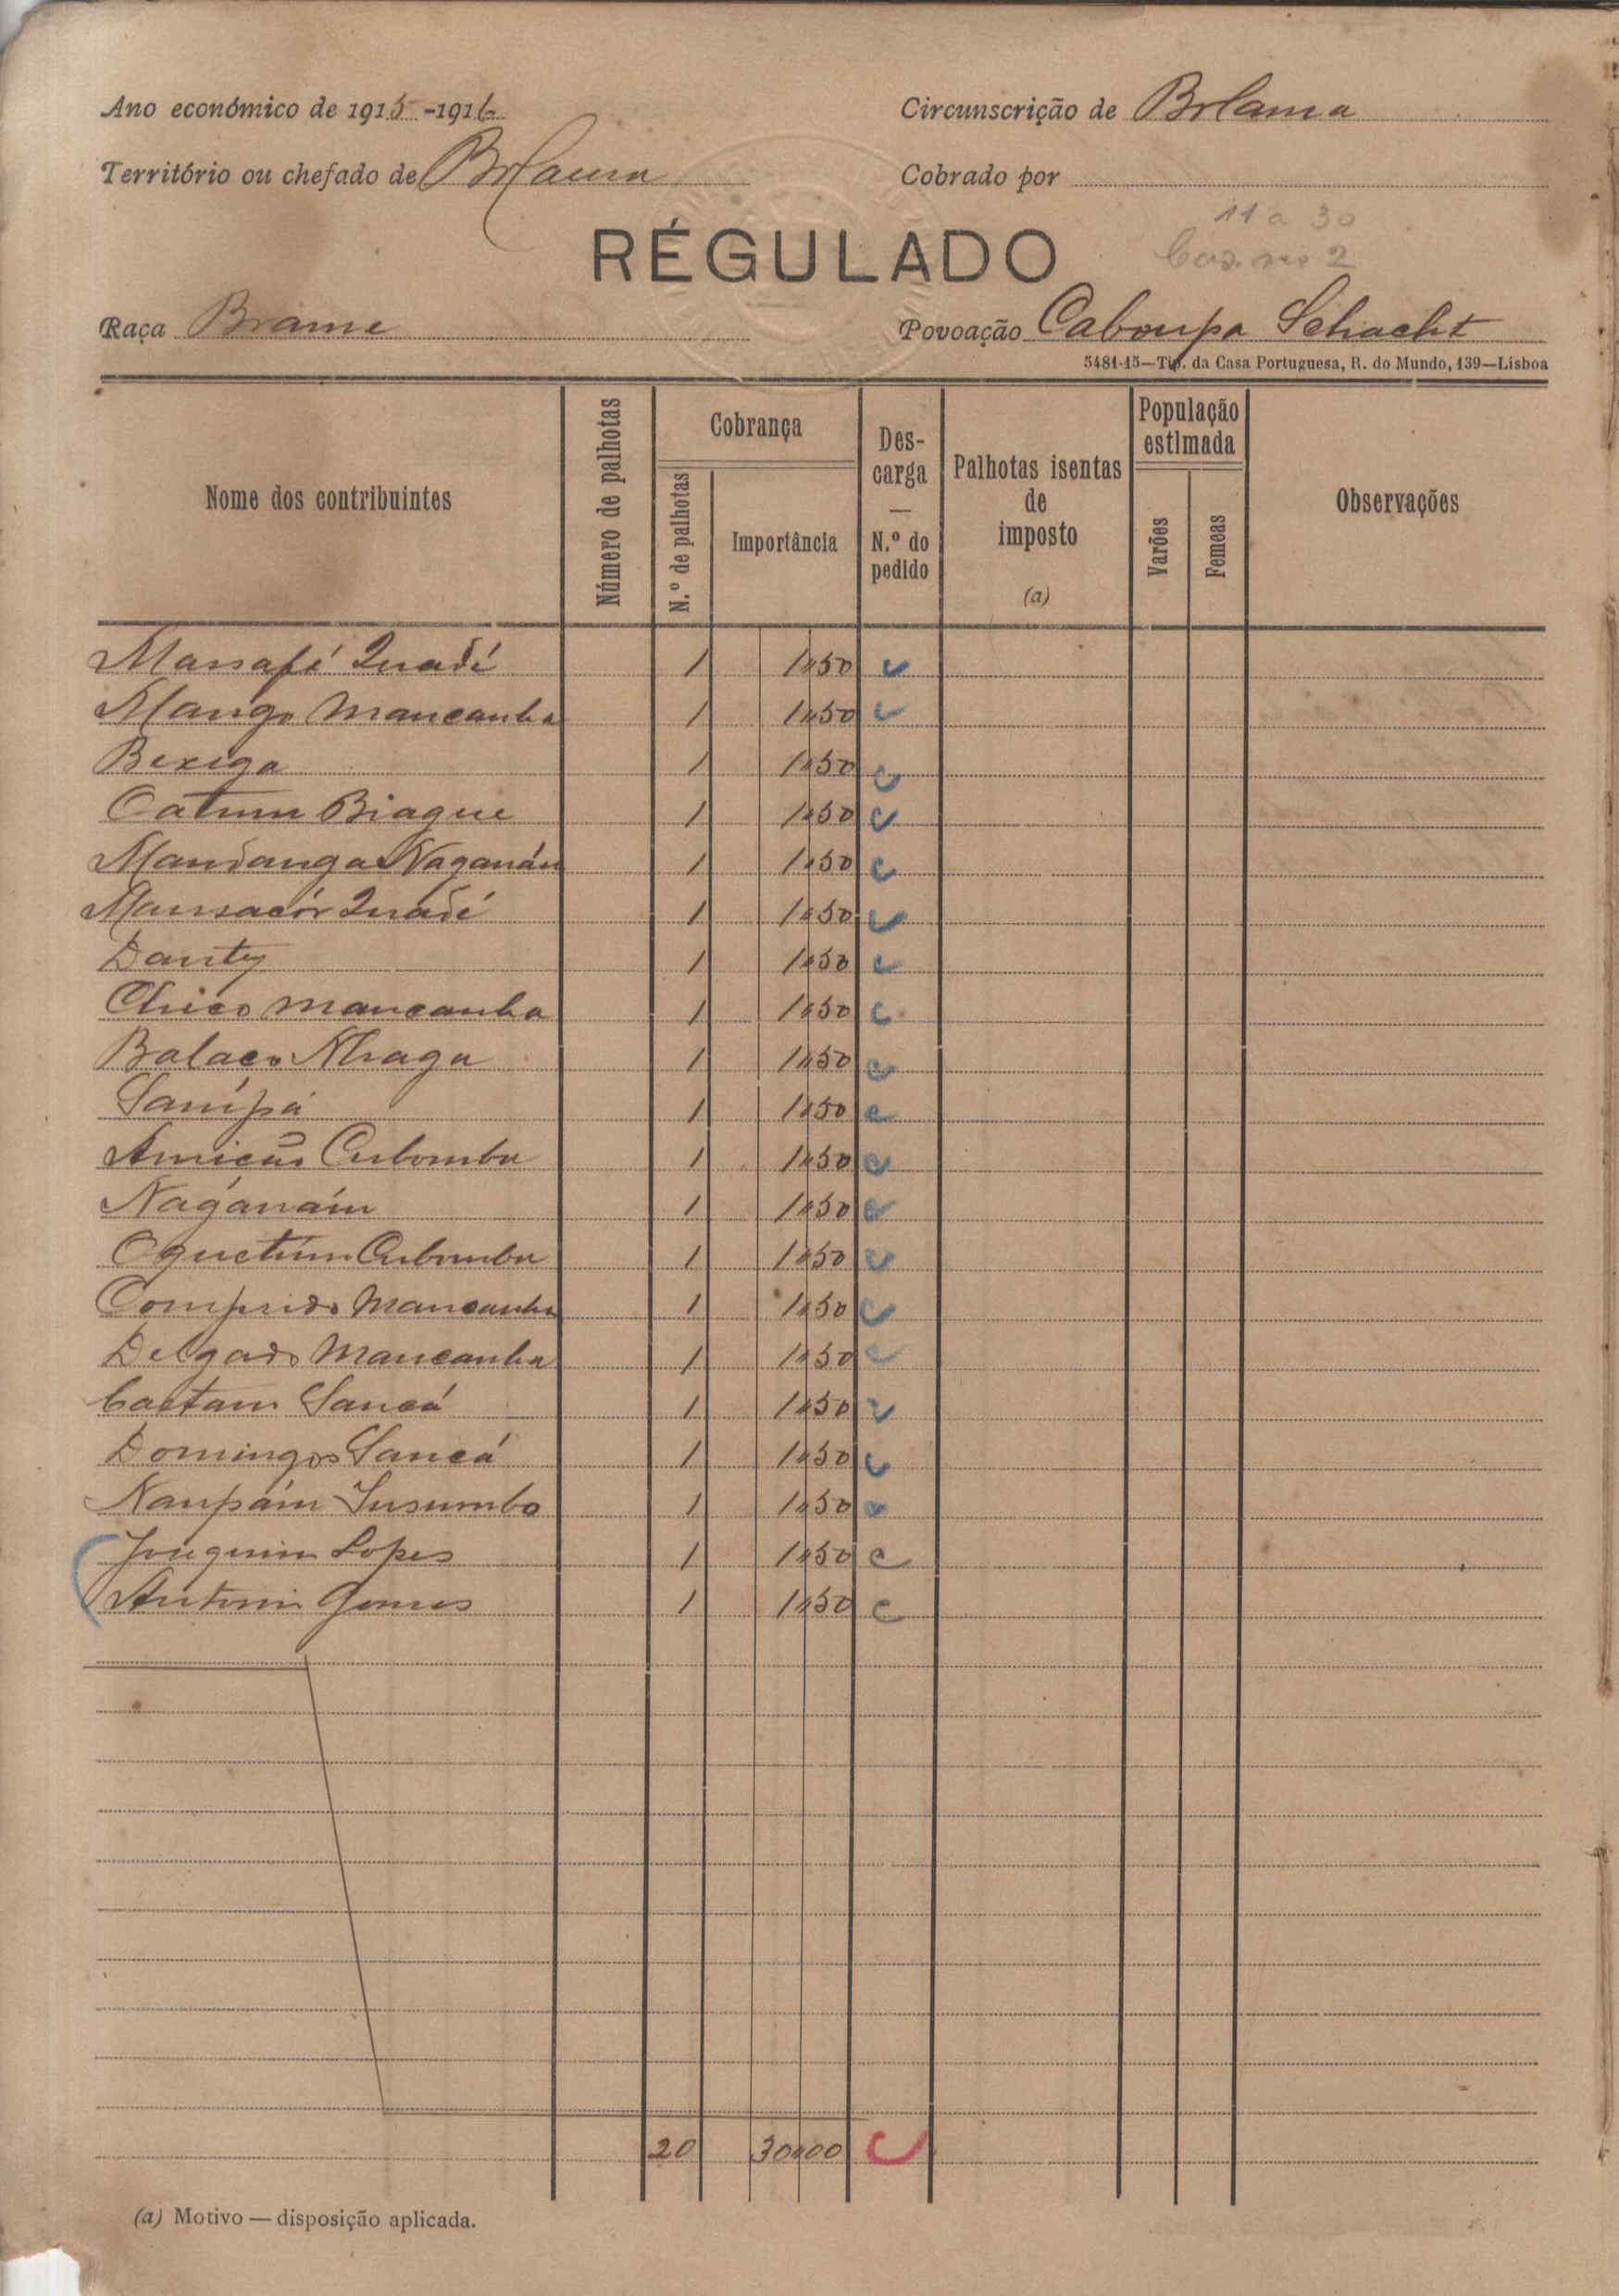 Ano económico de 1915-1916
Circunscrição de Bolama
Território ou chefado de Bolama
Cobrado por
11 a 30
RÉGULADO
2
Raça Brame
Povoação Caboupa Schacht
5481-15—Tip. da Casa Portuguesa, R. do Mundo, 139—Lisboa
Nome dos contribuintes
Número de palhotas
Cobrança
N.º de palhotas
Importância
Descarga — N.º do pedido
Palhotas isentas de imposto (a)
População estimada
Varões
Femeas
Observações
Massafé Quadé 1 1$50
Mango Mancanha 1 1$50
Bexiga 1 1$50
Catum Biague 1 1$50
Mandanga Naganán 1 1$50
Mansacór Quadé 1 1$50
Danty 1 1$50
Chico Mancanha 1 1$50
Balaco 1 1$50
Sanípá 1 1$50
Cubomba 1 1$50
Nagánaím 1 1$50
Oquetum Cubomba 1 1$50
Comprido Mancanha 1 1$50
Delgado Mancanha 1 1$50
Caetano Sancá 1 1$50
Domingos Sancá 1 1$50
Naupáim 1 1$50
Joaquim Lopes 1 1$50
Antonio Gomes 1 1$50
20 30$00
(a) Motivo — disposição aplicada.